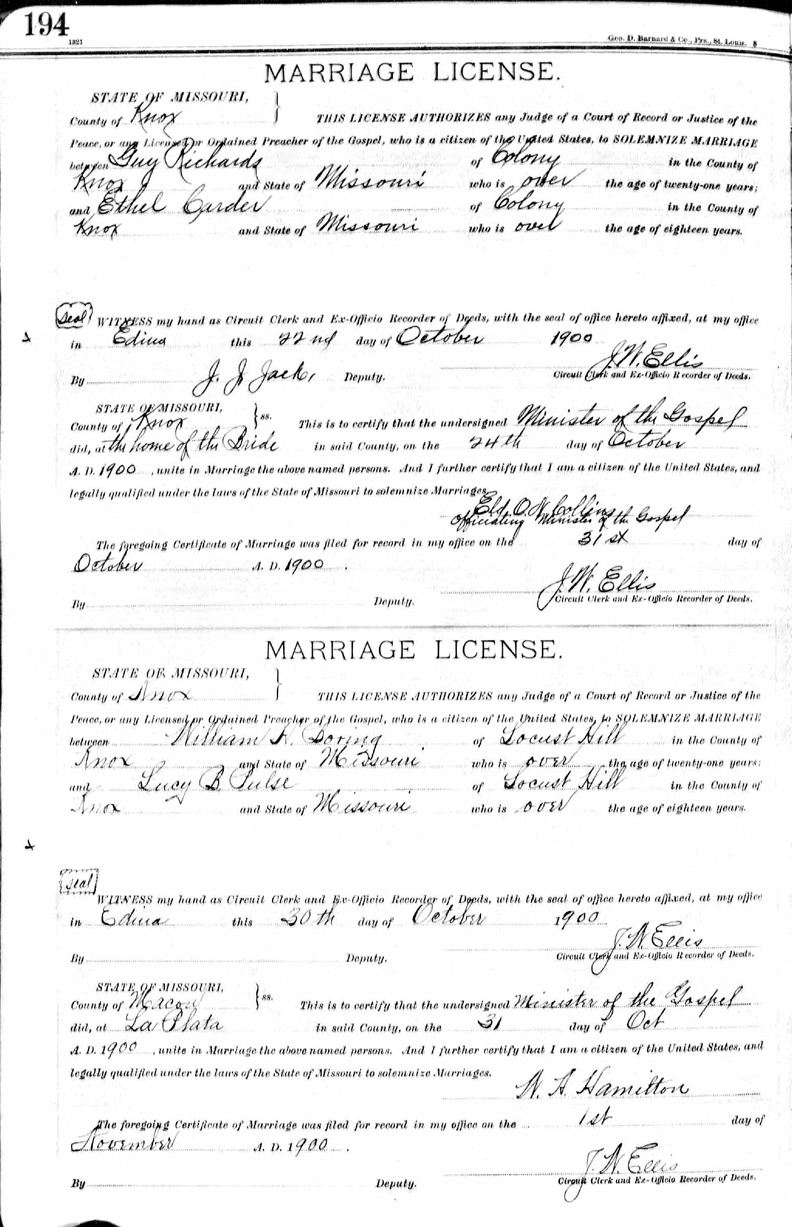 194
1321
Geo. D. Barnard & Co., Prs., St. Louis. 8
MARRIAGE LICENSE.
STATE OF MISSOURI,
County of Knox } THIS LICENSE AUTHORIZES any Judge of a Court of Record or Justice of the
Peace, or any Licensed or Ordained Preacher of the Gospel, who is a citizen of the United States, to SOLEMNIZE MARRIAGE
between Guy Richards of Colony in the County of
Knox and State of Missouri who is over the age of twenty-one years;
and Ethel Carder of Colony in the County of
Knox and State of Missouri who is over the age of eighteen years.
Seal WITNESS my hand as Circuit Clerk and Ex-Officio Recorder of Deeds, with the seal of office hereto affixed, at my office
in Edina this 22nd day of October 1900
J. W. Ellis
By J. J. Jack, Deputy. Circuit Clerk and Ex-Officio Recorder of Deeds.
STATE OF MISSOURI,
County of Knox } ss. This is to certify that the undersigned Minister of the Gospel
did, at the home of the Bride in said County, on the 24th day of October
A. D. 1900, unite in Marriage the above named persons. And I further certify that I am a citizen of the United States, and
legally qualified under the laws of the State of Missouri to solemnize Marriages.
Eld. O. N. Collins
Officiating Minister of the Gospel
The foregoing Certificate of Marriage was filed for record in my office on the 31st day of
October A. D. 1900.
J. W. Ellis
By Deputy. Circuit Clerk and Ex-Officio Recorder of Deeds.
MARRIAGE LICENSE.
STATE OF MISSOURI,
County of Knox } THIS LICENSE AUTHORIZES any Judge of a Court of Record or Justice of the
Peace, or any Licensed or Ordained Preacher of the Gospel, who is a citizen of the United States, to SOLEMNIZE MARRIAGE
between William H. Doring of Locust Hill in the County of
Knox and State of Missouri who is over the age of twenty-one years;
and Lucy B. Pulse of Locust Hill in the County of
Knox and State of Missouri who is over the age of eighteen years.
Seal
WITNESS my hand as Circuit Clerk and Ex-Officio Recorder of Deeds, with the seal of office hereto affixed, at my office
in Edina this 30th day of October 1900
J. W. Ellis
By Deputy. Circuit Clerk and Ex-Officio Recorder of Deeds.
STATE OF MISSOURI,
County of Macon } ss. This is to certify that the undersigned Minister of the Gospel
did, at La Plata in said County, on the 31 day of Oct
A. D. 1900, unite in Marriage the above named persons. And I further certify that I am a citizen of the United States, and
legally qualified under the laws of the State of Missouri to solemnize Marriages.
W. A. Hamilton
The foregoing Certificate of Marriage was filed for record in my office on the 1st day of
November A. D. 1900.
J. W. Ellis
By Deputy. Circuit Clerk and Ex-Officio Recorder of Deeds.